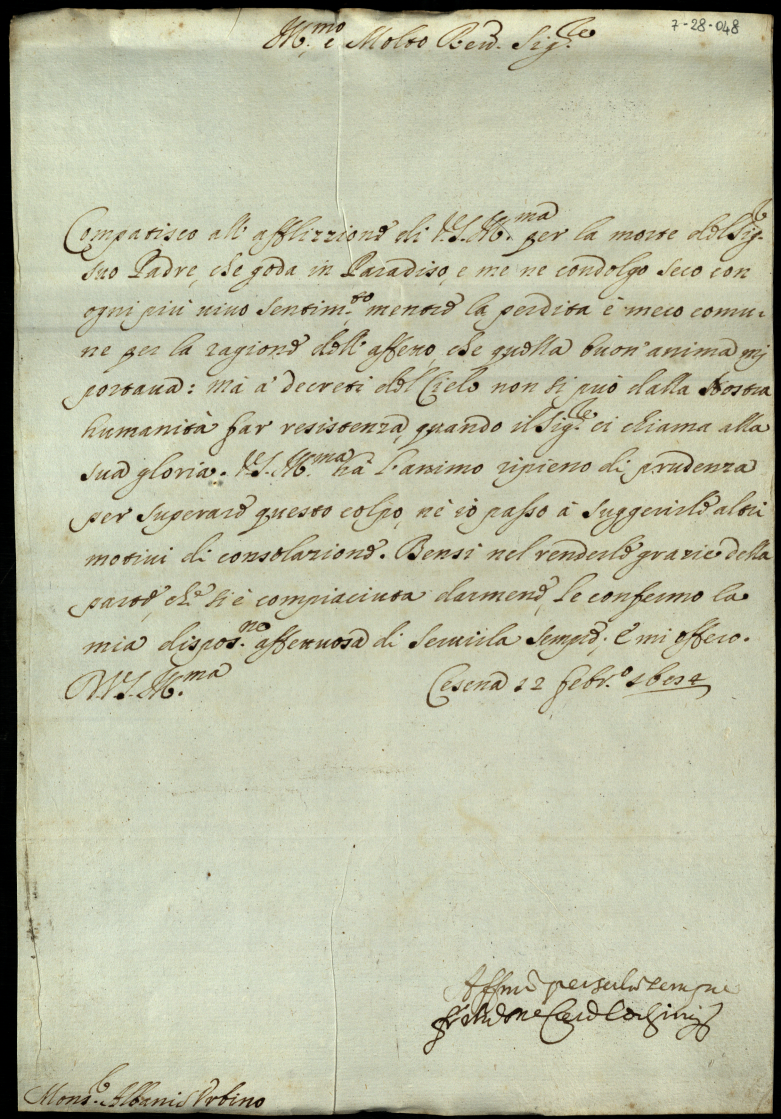 7-28-048
Ill.mo e Molto Rev.d Sig.re
Compatisco all' afflizzione di V.S.Ill.ma per la morte del Sig.re
suo Padre, che goda in Paradiso, e me ne condolgo seco con
ogni più vivo sentim.to mentre la perdita è meco comu-
ne per la ragione dell' affetto che quella buon' anima mi
portava: mà a' decreti del Cielo non si può dalla Nostra
humanità far resistenza, quando il Sig.re ci chiama alla
sua gloria. V.S.Ill.ma hà l'animo ripieno di prudenza
per superare questo colpo, nè io passo à suggerirle altri
motivi di consolazione. Bensi nel renderle grazie della
parte, che si è compiaciuta darmene, Le confermo la
mia dispos.ne affettuosa di servirla sempre, E mi offero.
D.V.S.Ill.ma Cesena 22 Febr.o
Aff.mo per ser.la sempre
Card
Mons.re Albani Urbino